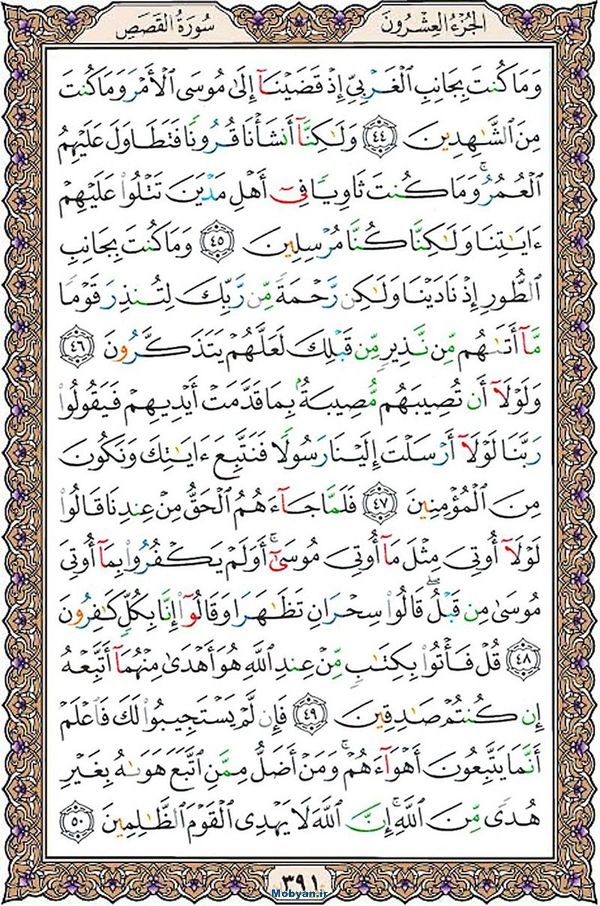 الجزء العشرون
سورة القصص
وَمَا كُنتَ بِجَانِبِ ٱلْغَرْبِيِّ إِذْ قَضَيْنَآ إِلَىٰ مُوسَى ٱلْأَمْرَ وَمَا كُنتَ
مِنَ ٱلشَّٰهِدِينَ ٤٤ وَلَٰكِنَّآ أَنشَأْنَا قُرُونًا فَتَطَاوَلَ عَلَيْهِمُ
ٱلْعُمُرُ ۚ وَمَا كُنتَ ثَاوِيًا فِىٓ أَهْلِ مَدْيَنَ تَتْلُوا۟ عَلَيْهِمْ
ءَايَٰتِنَا وَلَٰكِنَّا كُنَّا مُرْسِلِينَ ٤٥ وَمَا كُنتَ بِجَانِبِ
ٱلطُّورِ إِذْ نَادَيْنَا وَلَٰكِن رَّحْمَةً مِّن رَّبِّكَ لِتُنذِرَ قَوْمًا
مَّآ أَتَىٰهُم مِّن نَّذِيرٍ مِّن قَبْلِكَ لَعَلَّهُمْ يَتَذَكَّرُونَ ٤٦
وَلَوْلَآ أَن تُصِيبَهُم مُّصِيبَةٌۢ بِمَا قَدَّمَتْ أَيْدِيهِمْ فَيَقُولُوا۟
رَبَّنَا لَوْلَآ أَرْسَلْتَ إِلَيْنَا رَسُولًا فَنَتَّبِعَ ءَايَٰتِكَ وَنَكُونَ
مِنَ ٱلْمُؤْمِنِينَ ٤٧ فَلَمَّا جَآءَهُمُ ٱلْحَقُّ مِنْ عِندِنَا قَالُوا۟
لَوْلَآ أُوتِىَ مِثْلَ مَآ أُوتِىَ مُوسَىٰٓ ۚ أَوَلَمْ يَكْفُرُوا۟ بِمَآ أُوتِىَ
مُوسَىٰ مِن قَبْلُ ۖ قَالُوا۟ سِحْرَانِ تَظَٰهَرَا وَقَالُوٓا۟ إِنَّا بِكُلٍّ كَٰفِرُونَ
٤٨ قُلْ فَأْتُوا۟ بِكِتَٰبٍ مِّنْ عِندِ ٱللَّهِ هُوَ أَهْدَىٰ مِنْهُمَآ أَتَّبِعْهُ
إِن كُنتُمْ صَٰدِقِينَ ٤٩ فَإِن لَّمْ يَسْتَجِيبُوا۟ لَكَ فَٱعْلَمْ
أَنَّمَا يَتَّبِعُونَ أَهْوَآءَهُمْ ۚ وَمَنْ أَضَلُّ مِمَّنِ ٱتَّبَعَ هَوَىٰهُ بِغَيْرِ
هُدًى مِّنَ ٱللَّهِ ۚ إِنَّ ٱللَّهَ لَا يَهْدِى ٱلْقَوْمَ ٱلظَّٰلِمِينَ ٥٠
٣٩١
Mobyan.ir